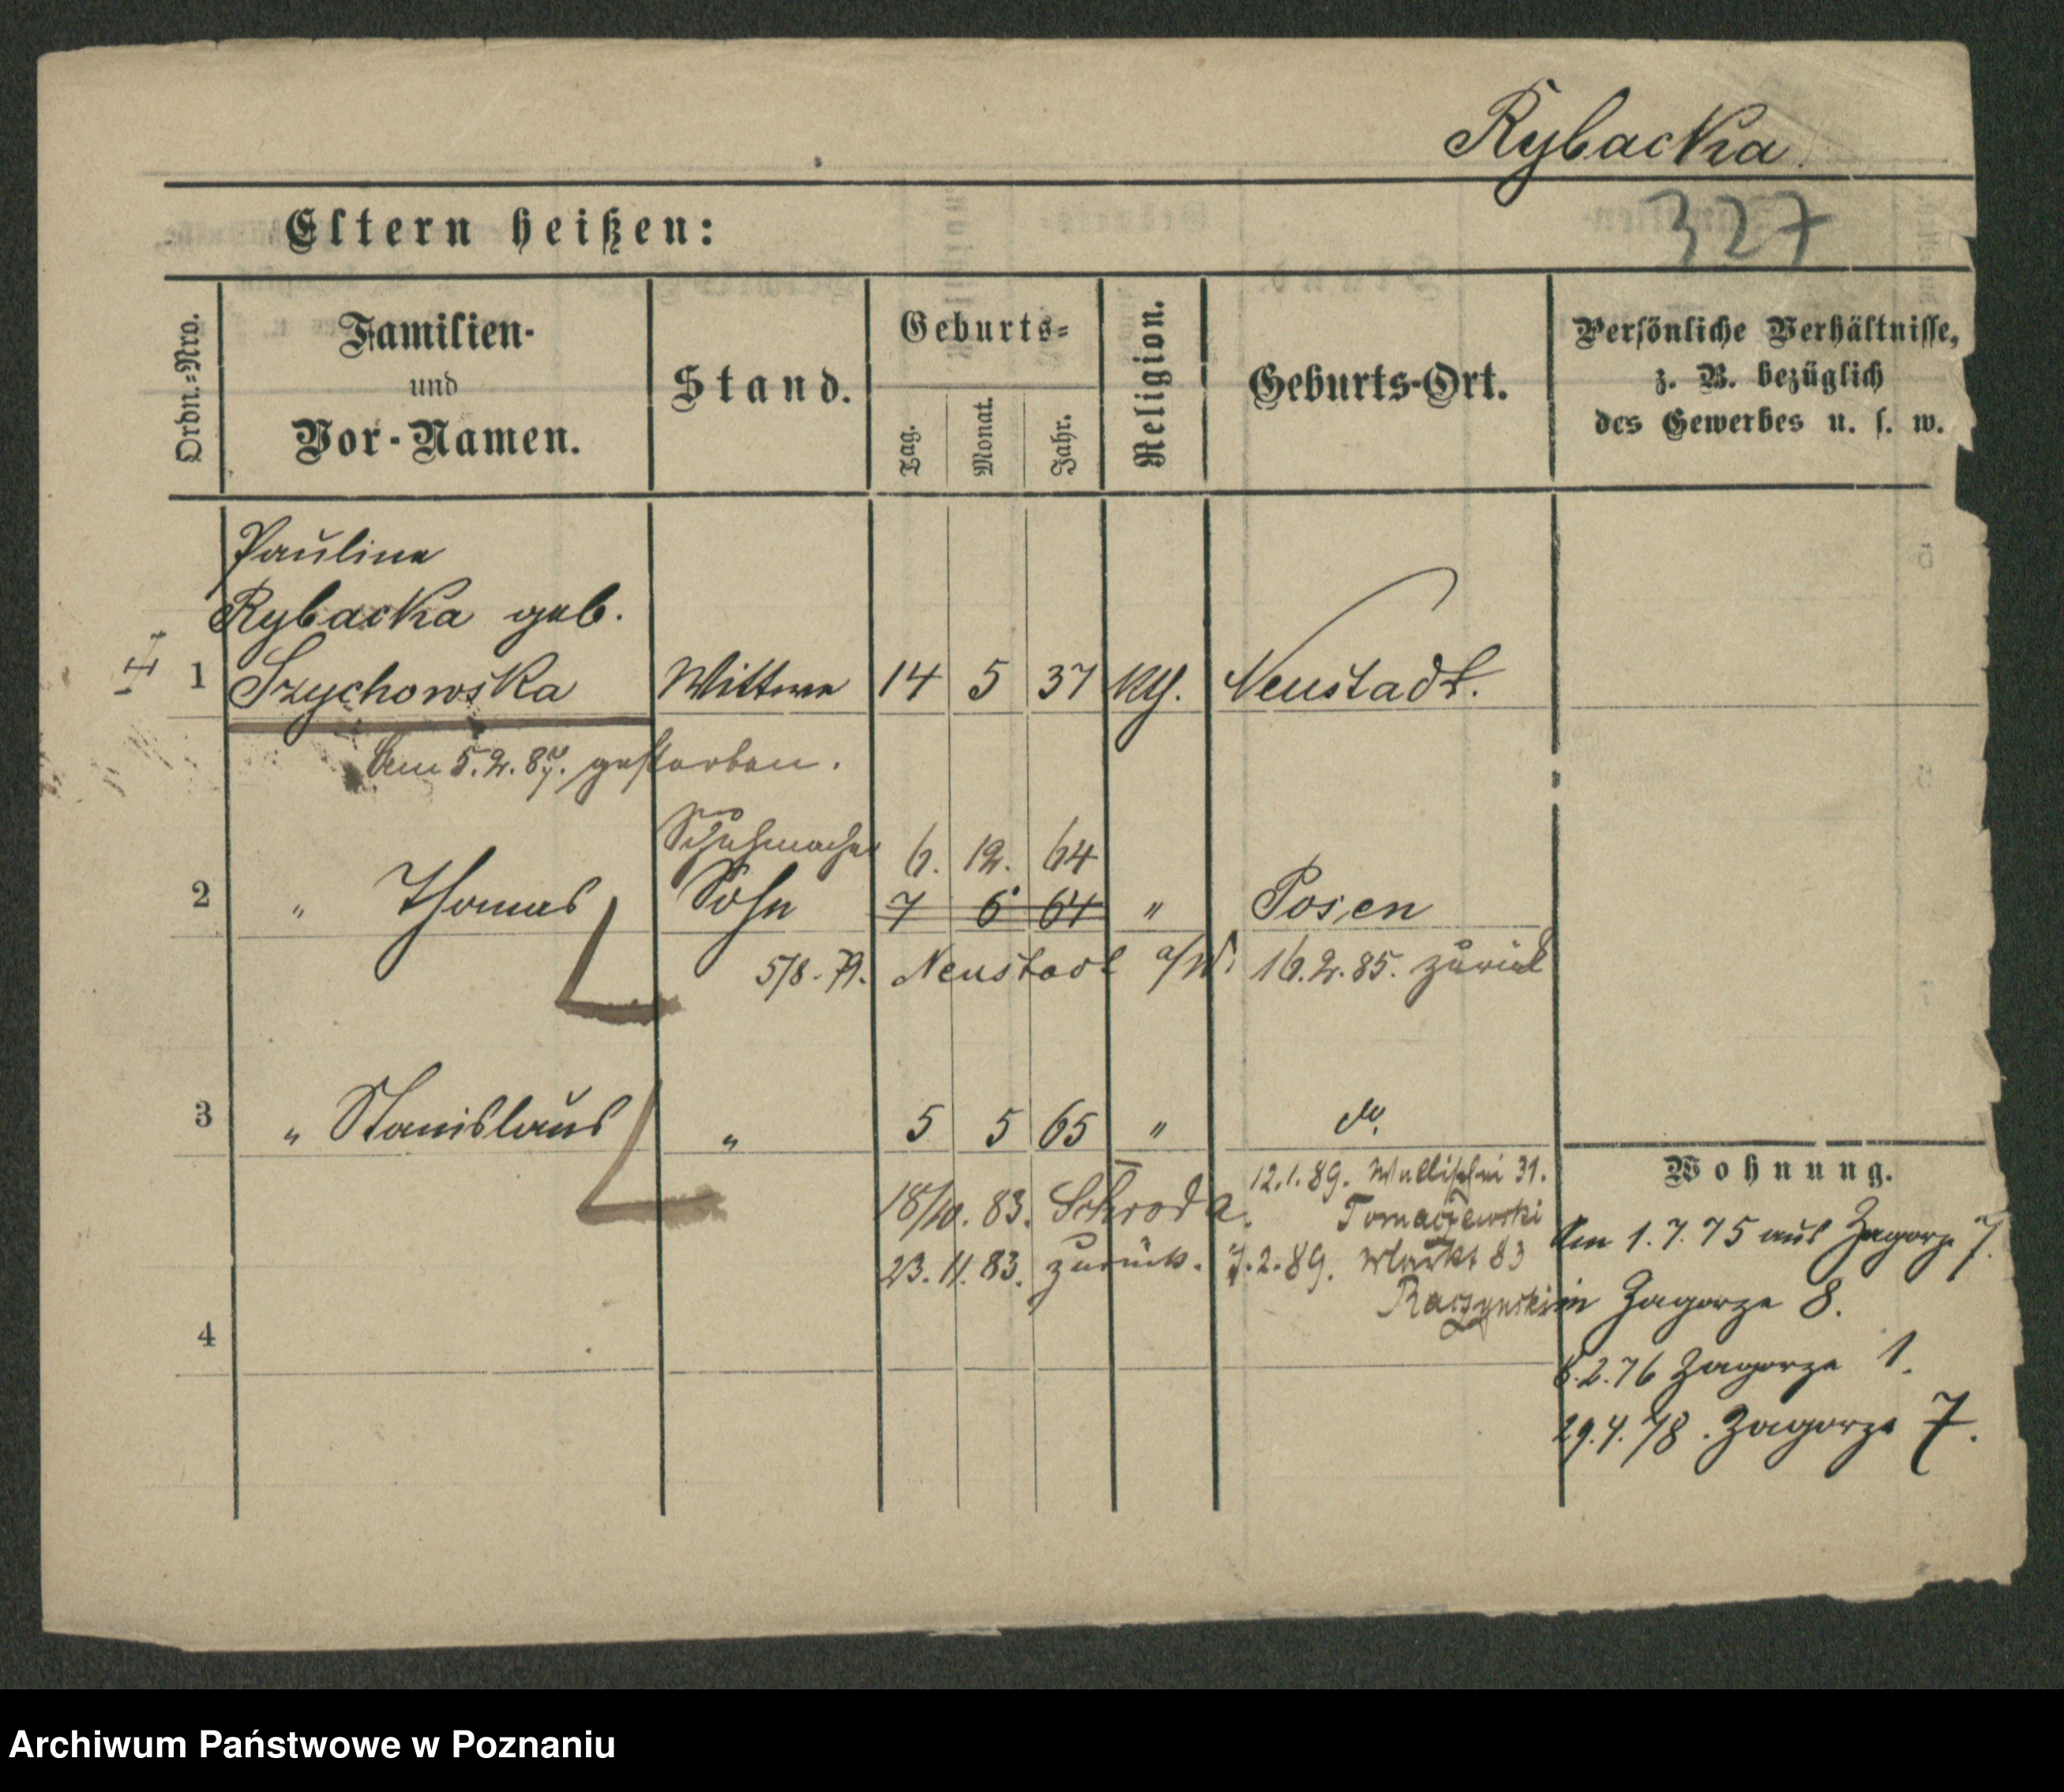 Rybacka
327
Eltern heißen:
Ordn.=Nro.
Familien-
und
Vor-Namen.
Stand.
Geburts=
Tag.
Monat.
Jahr.
Religion.
Geburts-Ort.
Persönliche Verhältnisse,
z. B. bezüglich
des Gewerbes u. s. w.
Pauline
Rybacka geb.
1 Szychowska Wittwe 14 5 37 Kth. Neustadt.
Am 5.2.87. gestorben.
Schuhmacher 6. 12. 64
2 " Thomas Sohn 7 6 64 " Posen
5/8. 79. Neustadt a/W. 16.2.85. zurück
3 " Stanislaus " 5 5 65 " do.
18/10. 83. Schroda.
23.11.83. zurück.
12.1.89. Wallischei 31.
Tomaszewski
7.2.89. Markt 83
Raczynski
4
Wohnung.
Am 1.7.75 aus Zagorze 7.
in Zagorze 8.
8.2.76 Zagorze 1.
29.4.78. Zagorze 7.
Archiwum Państwowe w Poznaniu